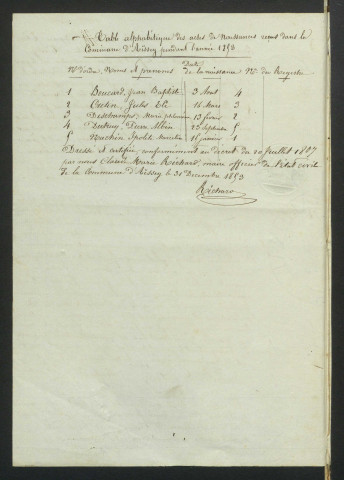 Table alphabétique des actes de Naissances reçus dans la
Commune d'Aissey pendant l'année 1853
Nos d'ordre Noms et prenoms Date de la naissance Nos du Registre
1 Boucard, Jean Baptiste 3 Aout 4
2 Jules 16 Mars 3
3 Deschamps, Marie 13 fevrier 2
4 Pierre Albin 23 Septembre 5
5 Hypolite 1
Dressé et certifié, conformément au décret du 20 Juillet 1807
par nous Claude Marie Richard, maire officier de l'état civil
de la Commune d'Aissey le 31 Decembre 1853
Richard